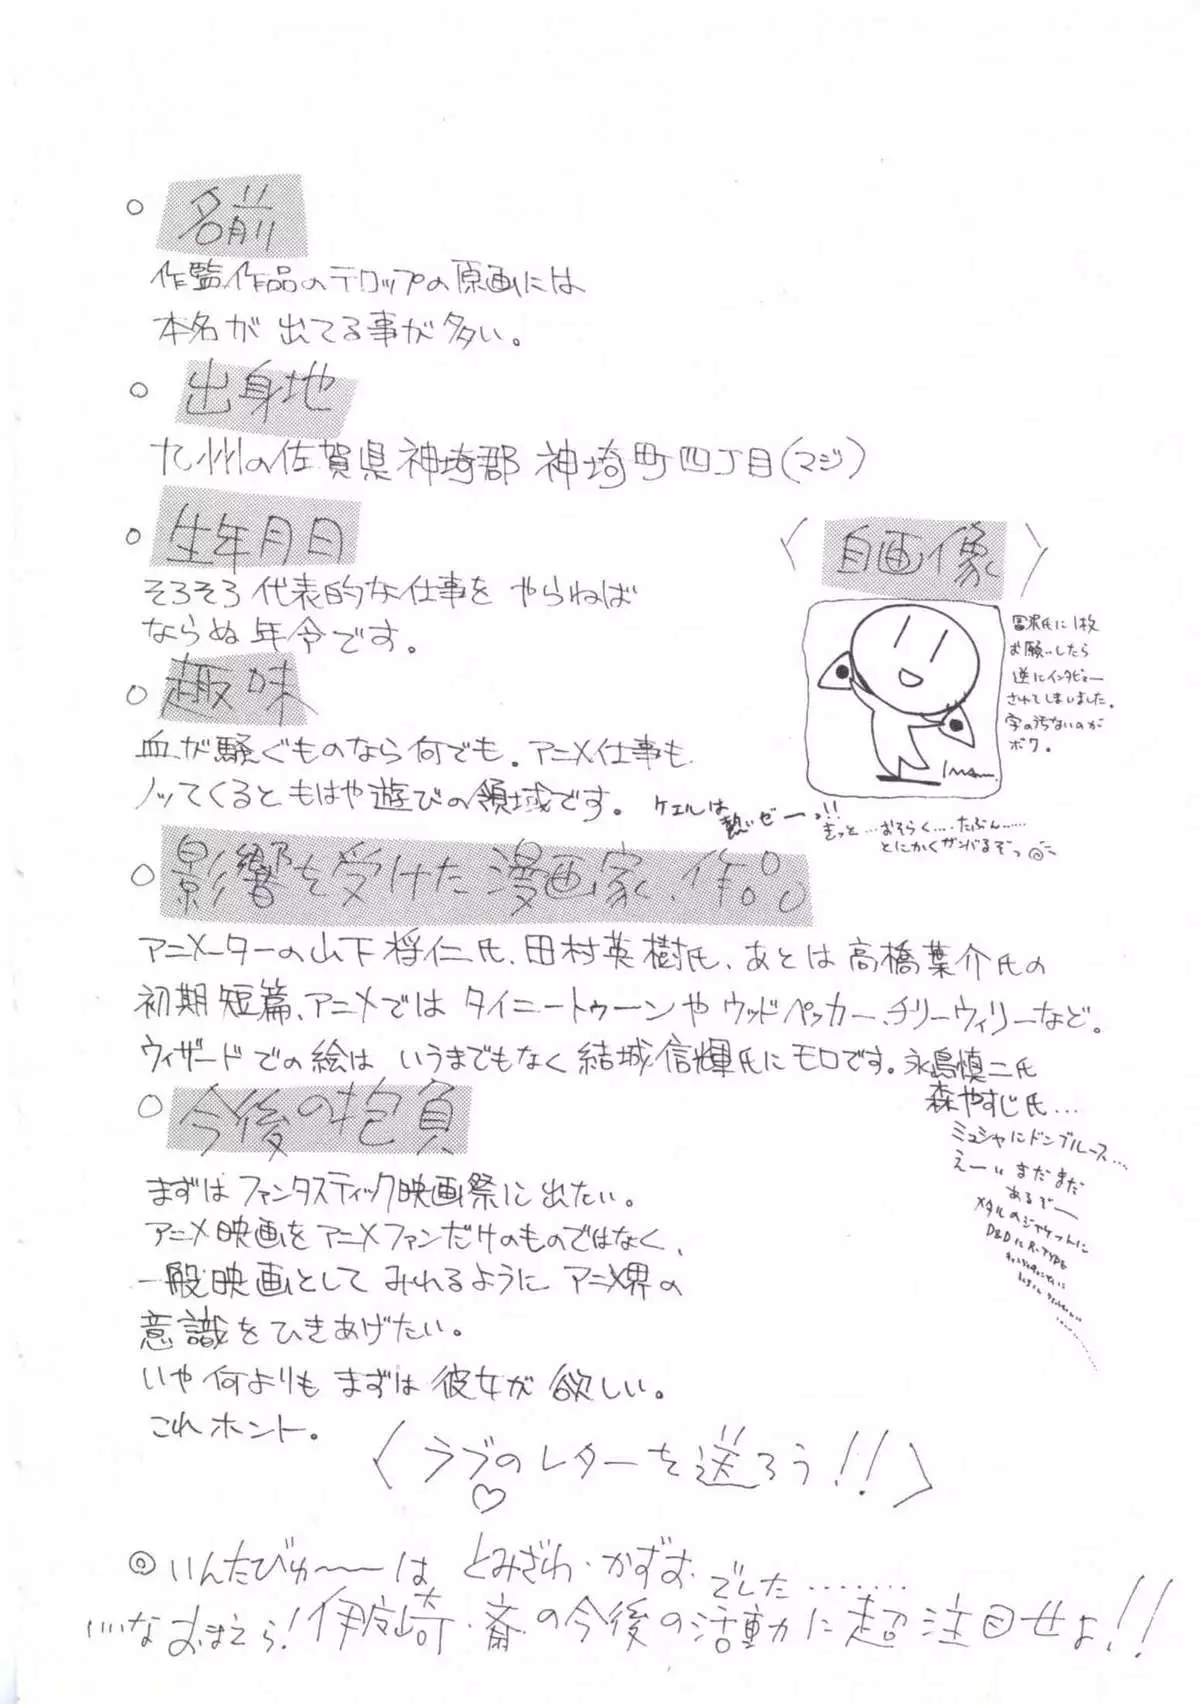 ○ 名前
作監作品のテロップの原画には
本名が出てる事が多い。
○ 出身地
九州の佐賀県神埼郡神埼町四丁目(マジ)
○ 生年月日
そろそろ代表的な仕事をやらねば
ならぬ年令です。
〈自画像〉
冨沢氏に1枚
お願いしたら
逆にインタビュー
されてしまいました。
字の汚ないのが
ボク。
○ 趣味
血が騒ぐものなら何でも。アニメ仕事も
ノッてくるともはや遊びの領域です。
ケェルは
熱いゼーっ!!
きっと…おそらく…たぶん……
とにかくガンバるぞっ
○ 影響を受けた漫画家、作品
アニメーターの山下将仁氏、田村英樹氏、あとは高橋葉介氏の
初期短篇、アニメではタイニートゥーンやウッドペッカー、チリーウィリーなど。
ウィザードでの絵はいうまでもなく結城信輝氏にモロです。永島慎二氏
森やすじ氏…
ミュシャにドンブルース…
えーいまだまだ
あるぞー
メタルのジャケットに
D&DにR-TYPE
○ 今後の抱負
まずはファンタスティック映画祭に出たい。
アニメ映画をアニメファンだけのものではなく、
一般映画としてみれるようにアニメ界の
意識をひきあげたい。
いや何よりもまずは彼女が欲しい。
これホント。
〈ラブのレターを送ろう!!〉
♡
◎いんたびゅ〜〜は とみざわ・かずお でした………
いいなおまえら!伊座崎・斎の今後の活動に超注目せよ!!